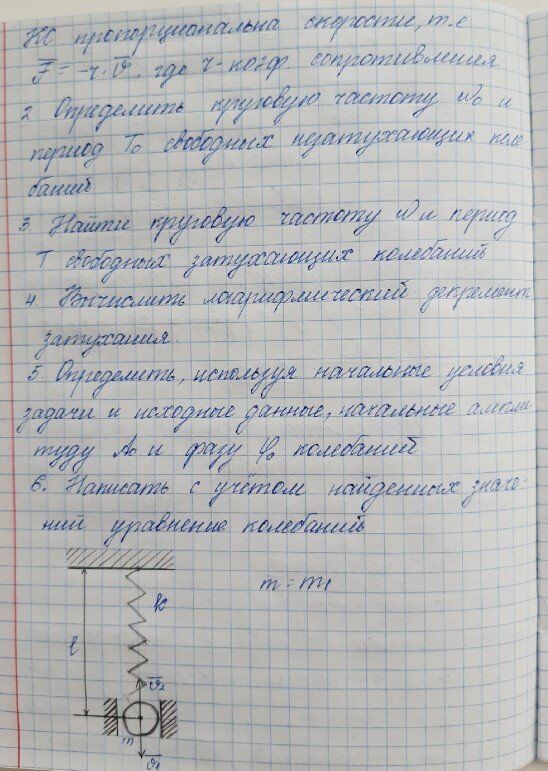 НС пропорциональна скорости, т.е
F̅ = -r·ϑ, где r - коэф сопротивления
2 Определить круговую частоту ω₀ и
период T₀ свободных незатухающих коле
баний
3 Найти круговую частоту ω и период
T свободных затухающих колебаний
4 Вычислить логарифмический декремент
затухания.
5. Определить, используя начальные условия
задачи и исходные данные, начальные ампли
туду A₀ и фазу φ₀ колебаний
6. Написать с учётом найденных значе-
ний уравнение колебаний
m = m₁
k
l
ϑ̅₂
m
ϑ̅₁